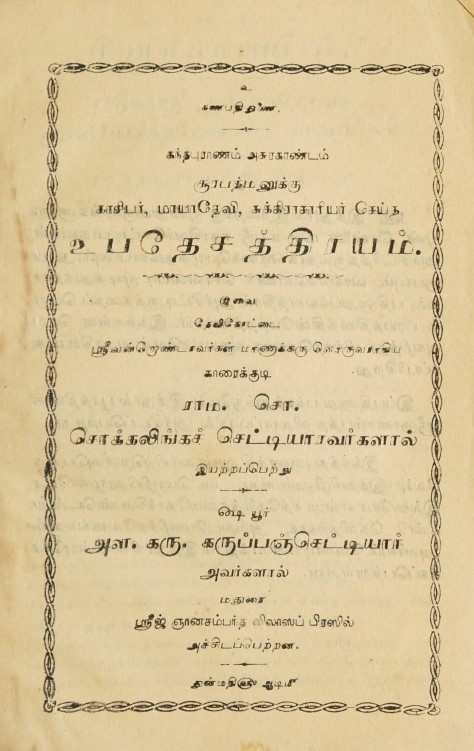 உ
கணபதிதுணை.
கந்தபுராணம் அசுரகாண்டம்
சூரபத்மனுக்கு
காசியர், மாயாதேவி, சுக்கிராசாரியர் செய்த
உபதேசத்திரயம்.
இவை
தேவிகோட்டை
ஸ்ரீவன்றொண்டரவர்கள் மாணாக்கருளொருவராகிய
காரைக்குடி
ராம. சொ.
சொக்கலிங்கச் செட்டியாரவர்களால்
இயற்றப்பெற்று
௸ யூர்
அள. கரு. கருப்பஞ்செட்டியார்
அவர்களால்
மதுரை
ஸ்ரீஜ் ஞானசம்பந்த விலாஸப் பிரஸில்
அச்சிடப்பெற்றன.
துன்மதி௵ ஆடி௴